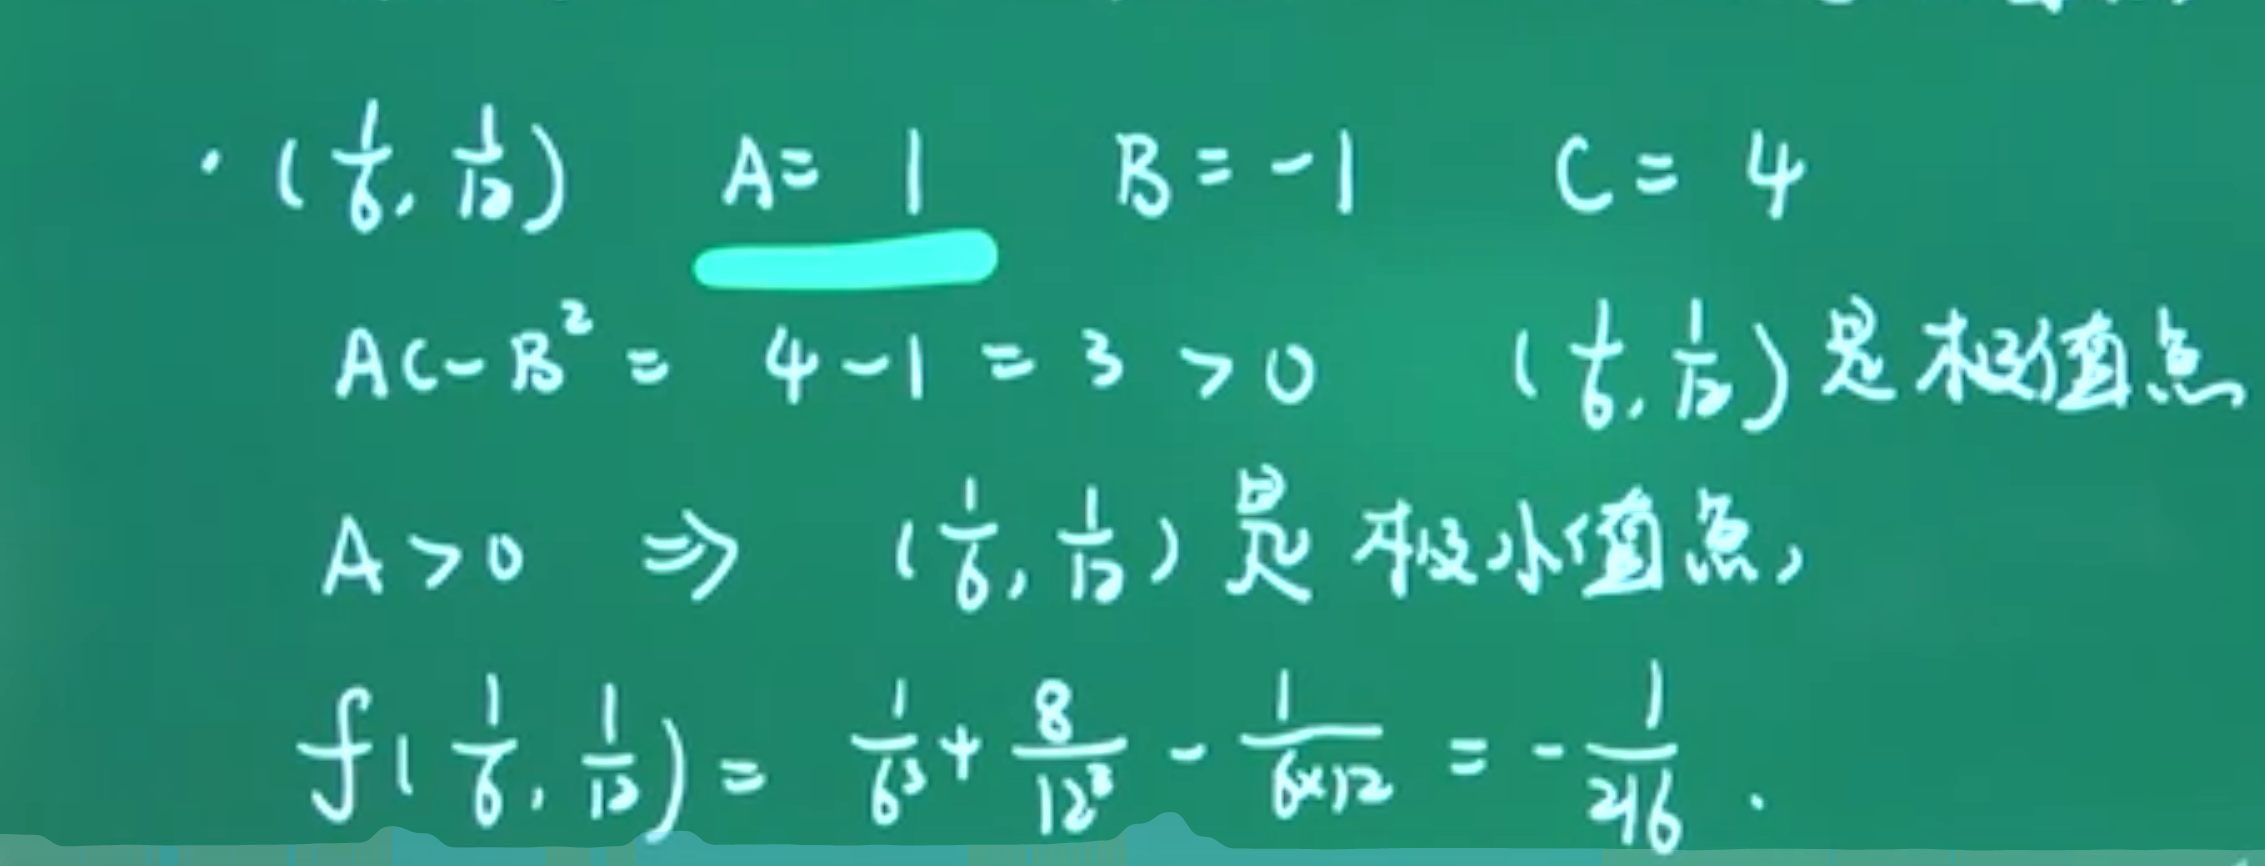 · (1/6, 1/12) A = 1 B = -1 C = 4
AC - B² = 4 - 1 = 3 > 0 (1/6, 1/12) 是极值点
A > 0 ⇒ (1/6, 1/12) 是极小值点,
f(1/6, 1/12) = 1/6³ + 8/12³ - 1/(6×12) = - 1/216 .